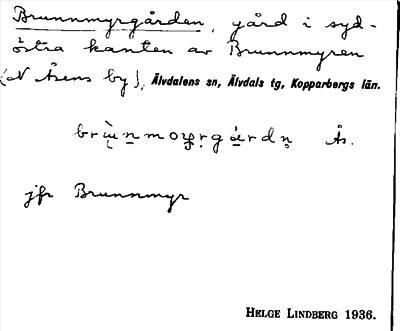 Brunnmyrgården, gård i syd-
östra kanten av Brunnmyren
(N Åsens by), Älvdalens sn, Älvdals tg, Kopparbergs län.
Ås.
jfr Brunnmyr
HELGE LINDBERG 1936.